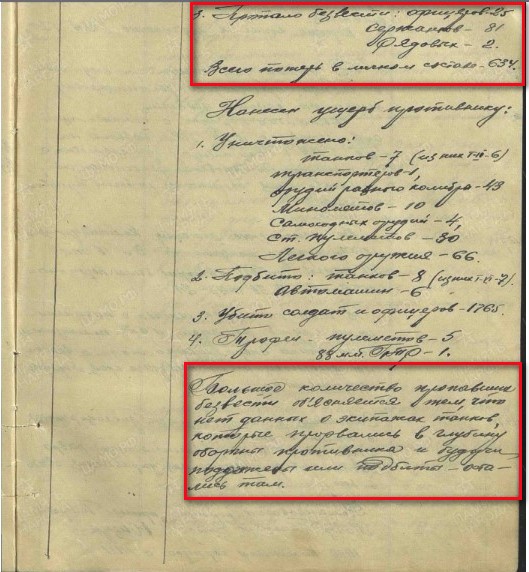 3. Пропало безвести: офицеров-35
сержантов - 81
Рядовых - 2.
Всего потерь в личном составе - 634.
Нанесен ущерб противнику:
1. Уничтожено:
танков - 7 (из них Т-VI-6)
транспортеров-1,
орудий разного калибра-43
Минометов - 10
Самоходных орудий - 4,
ст. пулеметов - 30,
Легкого оружия - 66.
2. Подбито: танков - 8 (из них Т-VI-7).
Автомашин - 6
3. Убито солдат и офицеров - 1765.
4. Трофеи - пулеметов - 5
88 мм. - 1.
Большое количество пропавших
безвести объясняется тем что
нет данных о экипажах танков,
которые прорвались в глубину
обороны противника и будучи
подожжены или подбиты - оста-
лись там.